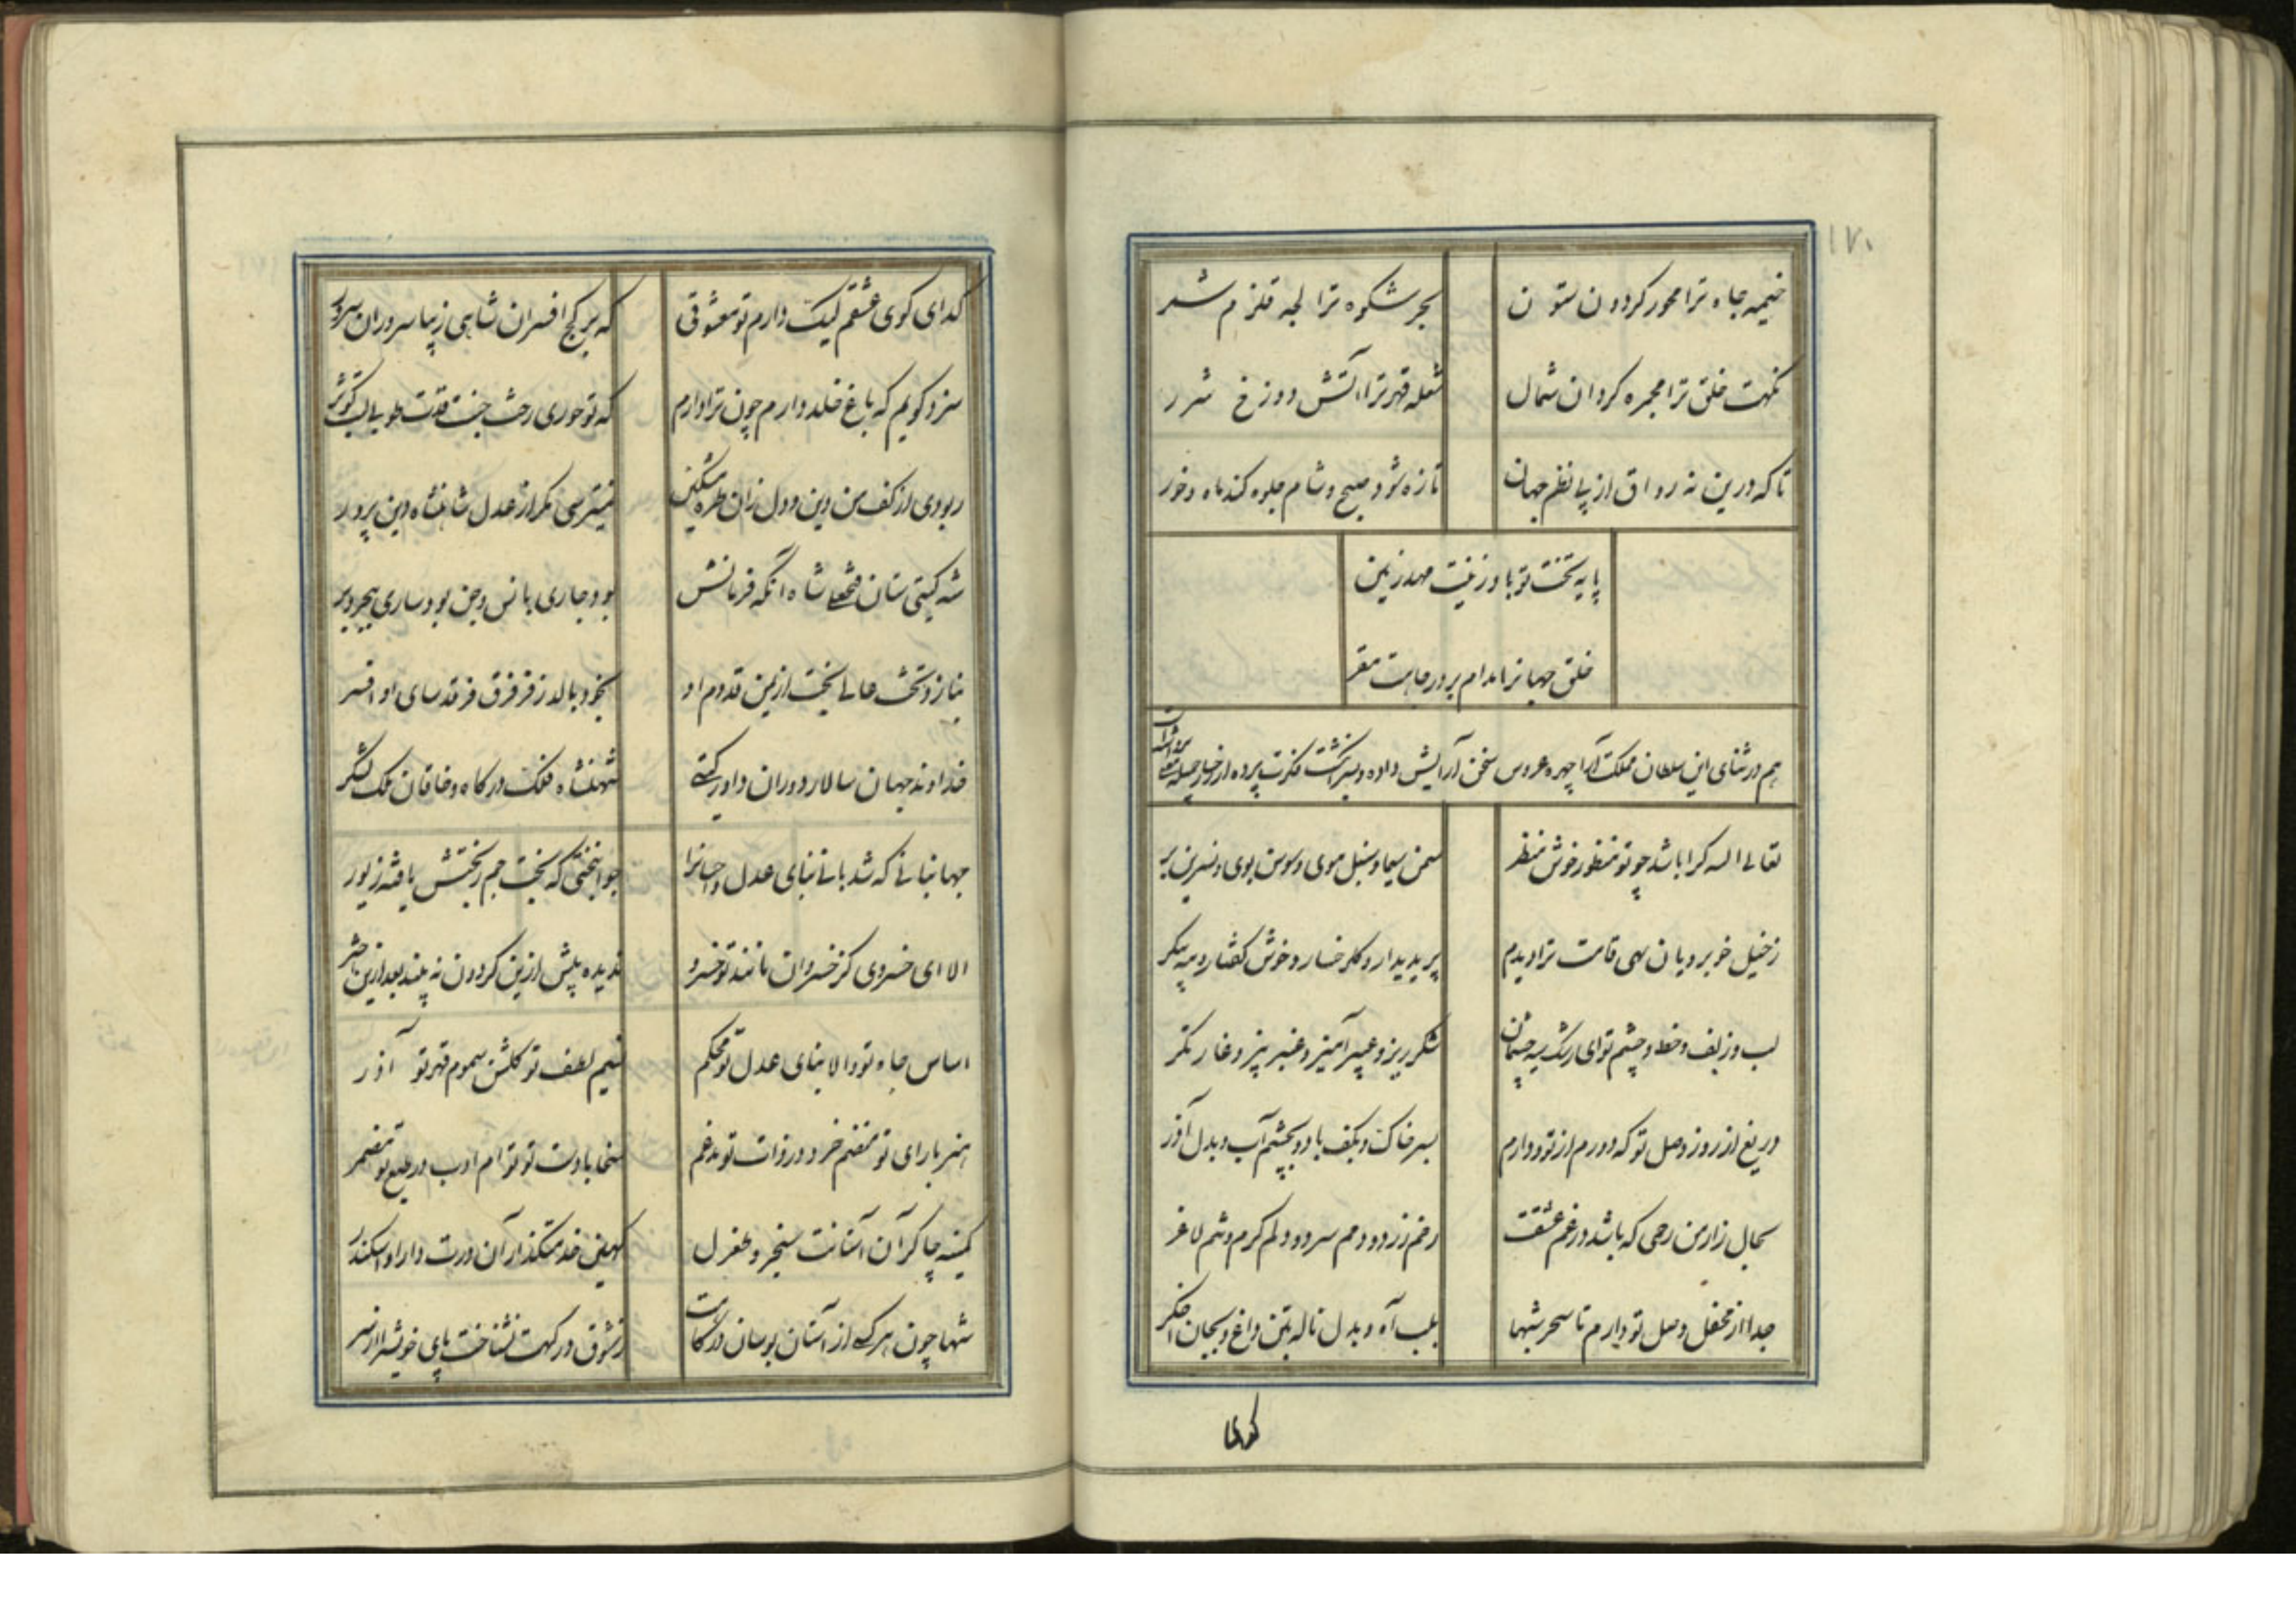 ۱۷۰
خیمه جاه ترا محور کردون ستون بحر شکوه ترا لجه قلزم شمر
نکهت خلق ترا مجمره کردان شمال شعله قهر ترا آتش دوزخ شرر
تا که درین نه رواق از پی نظم جهان تازه شود صبح و شام جلوه کند ماه و خور
پایه تخت تو باد زینت مهد زمین
خلق جهانرا مدام بر در جاهت مقر
هم در ثنای این سلطان مملکت آرا چهره عروس سخن آرایش داده و بسر انکشت فکرت پرده از رخسار
تعالی الله کرا باشد چو تو منظور خوش منظر سمن سیما و سنبل موی و سوسن بوی و نسرین بر
ز خیل خوبرویان سهی قامت ترا دیدم پریدیدار و کلرخسار و خوش کفتار و مه پیکر
لب و زلف و خط و چشم تو ای رشک سیه چشمان شکر ریز و عبیر آمیز و عنبر بیز و غارتکر
دریغ از روز وصل تو که دورم از تو و دارم بسر خاک و بکف باد و بچشم آب و بدل آذر
بحال زار من رحمی که باشد در غم عشقت رخم زرد و دمم سرد و دلم کرم و تنم لاغر
جدا از محفل وصل تو دارم تا سحر شبها بلب آه و بدل ناله بتن داغ و بجان اخکر
کدای
کدای کوی عشقم لیک دارم تو معشوقی که بر کج افسران شاهی ز زیبا سروران سرور
سزد کویم که باغ خلد دارم چون ترا دارم که تو حوری رخت جنت قدت طوبی لبت کوثر
ربودی از کف من دین و دل زان طره مشکین نمیترسی مکر از عدل شاهنشاه دین پرور
شه کیتی ستان فتحعلی شاه انکه فرمانش بود جاری بانس و جن بود ساری ببحر و بر
بنازد تخت عالی بخت از یمن قدوم او بخود بالد ز فر فرق فرقد سای او افسر
خداوند جهان سالار دوران داور کیتی شهنشاه فلک درکاه و خاقان ملک لشکر
جهانبانی که شد بانی بنای عدل و احسانرا جوانبختی که تخت جم ز بختش یافته زیور
الا ای خسروی کز خسروان مانند تو خسرو ندیده پیش ازین کردون نه بیند بعد ازین اختر
اساس جاه تو والا بنای عدل تو محکم نسیم لطف تو کلشن سموم قهر تو آذر
هنر با رای تو منضم خرد در ذات تو مدغم سخا با دست تو توام ادب در طبع تو مضمر
کمینه چاکر آن آستانت سنجر و طغرل کهین خدمتکذار آن درت دارا و اسکندر
شها چون هر که از آستان بوسان درکاهت ز شوق درکهت نشناخت پای خویش را از سر